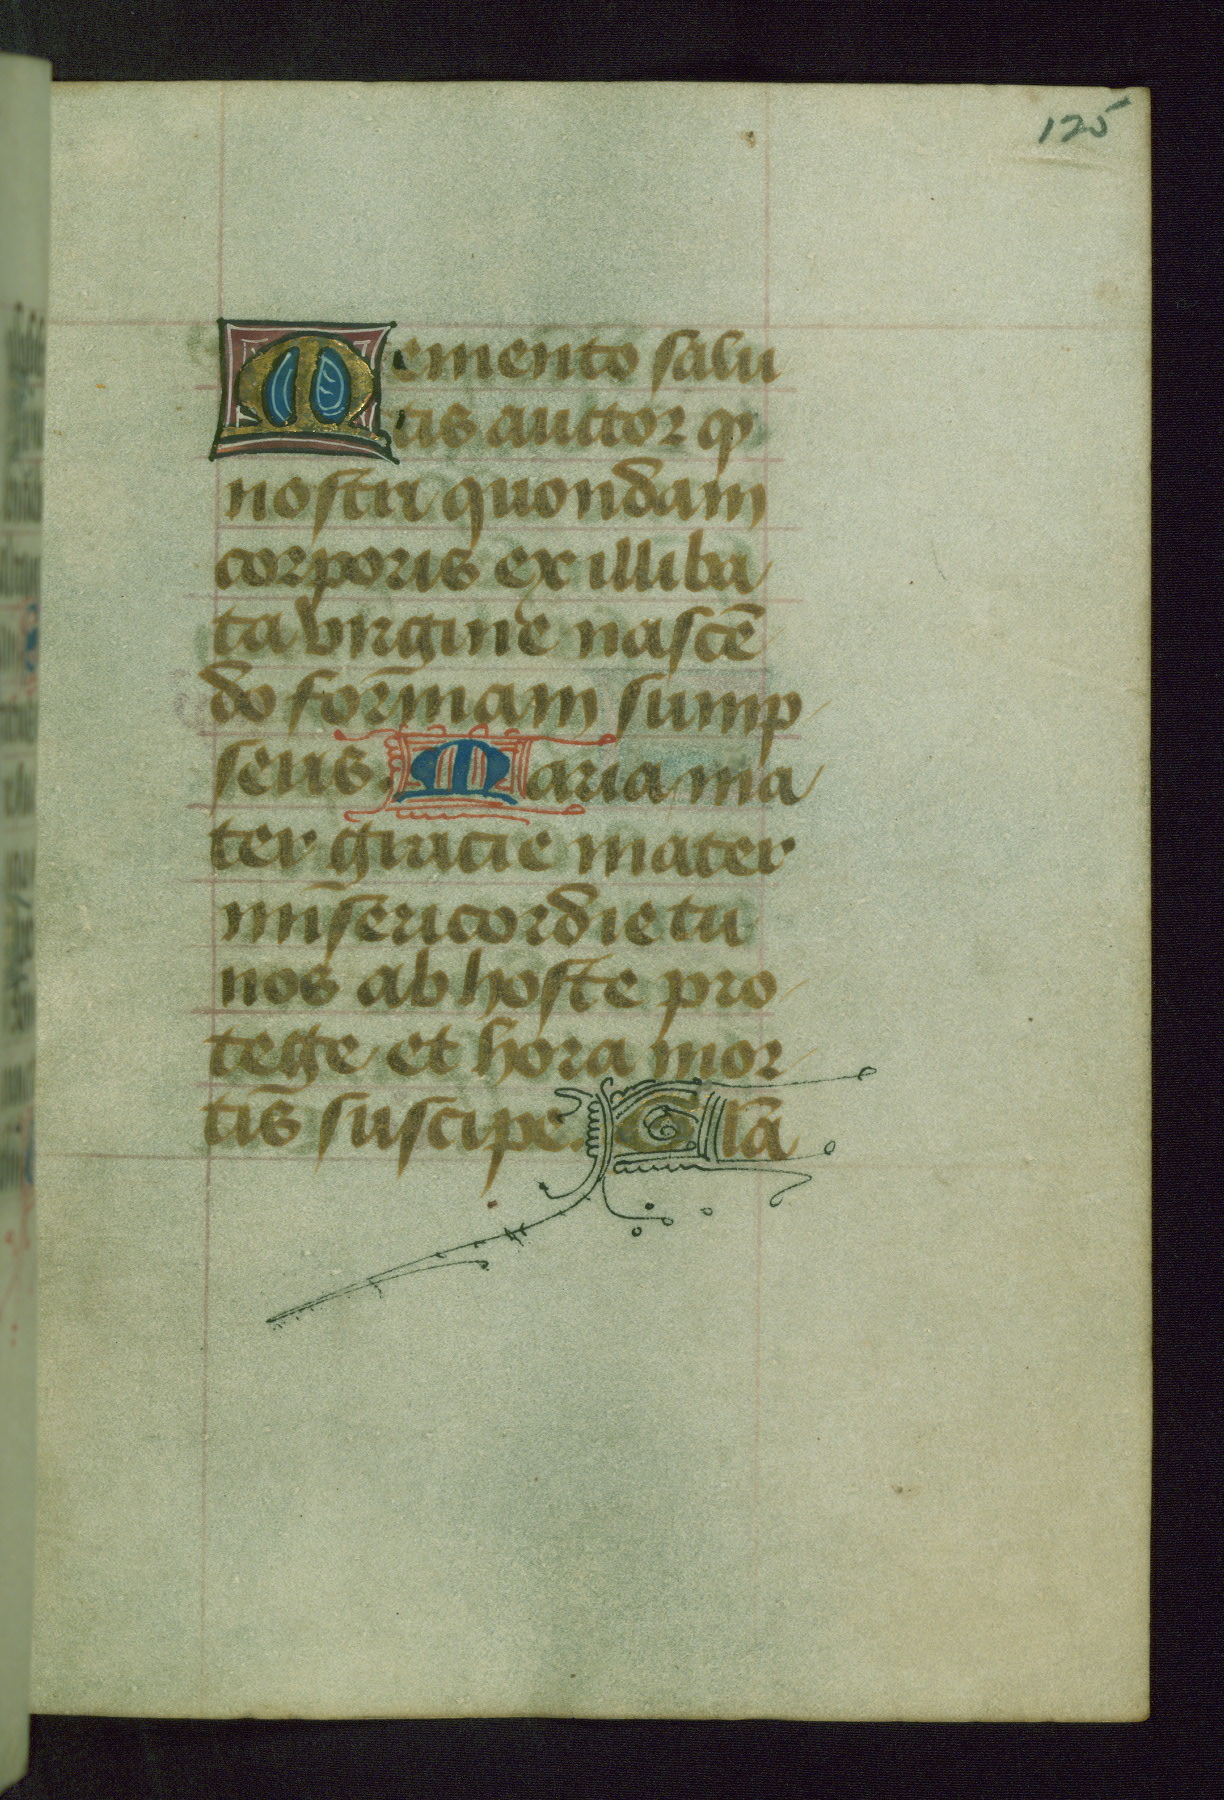 125
Memento salu
tis auctor qͥ
nostri quondam
corporis ex illiba
ta virgine nascē
do formam sump
seris. Maria ma
ter gracie mater
misericordie tu
nos ab hoste pro
tege et hora mor
tis suscipe. Glā